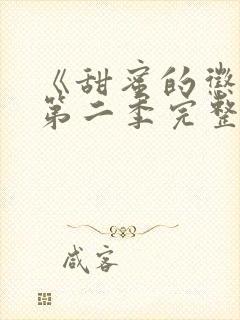 《甜蜜的惩
第二季完整
咸客